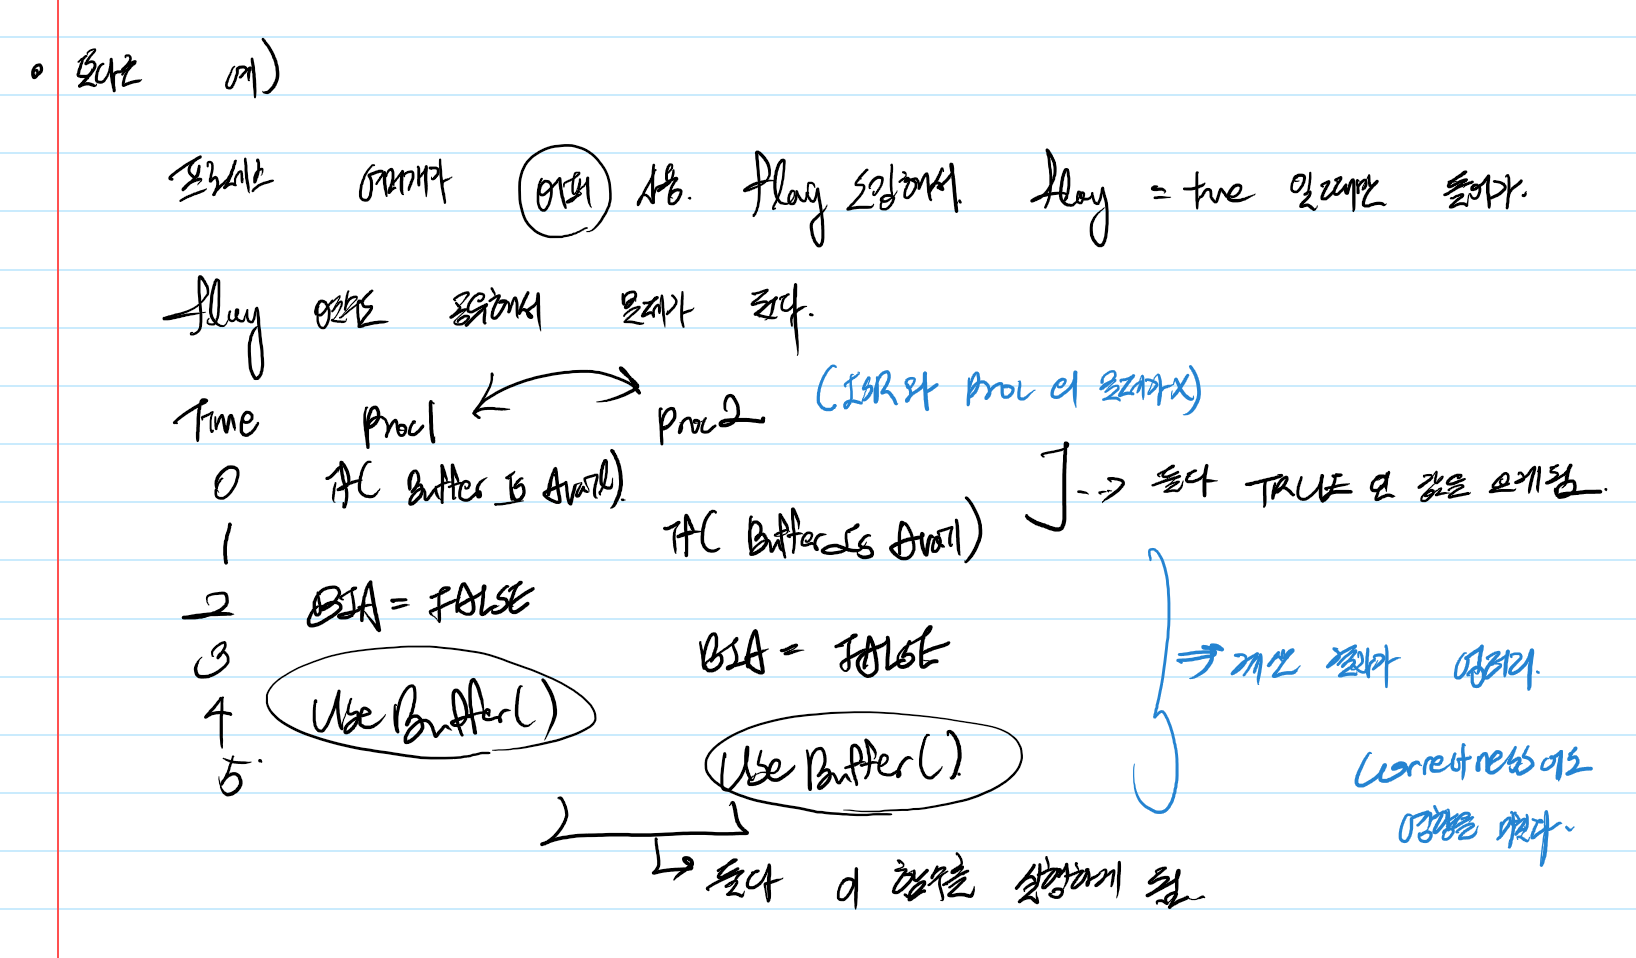 • 또다른 예)
프로세스 여러개가 버퍼 사용. flag 도입해서. flag = true 일때만 들어가.
flag 변수도 공유해서 문제가 된다.
(ISR와 proc 의 문제가 X)
Time Proc1 Proc2
0 If( Buffer Is Avail).
--> 둘다 TRUE 인 값을 보게됨.
1 If( Buffer Is Avail)
2 BIA = FALSE
3 BIA = FALSE
⇒ 계산 결과가 엉터리.
4 Use Buffer()
5 Use Buffer().
Correctness에도
영향을 미친다.
→ 둘다 이 함수를 실행하게 됨.